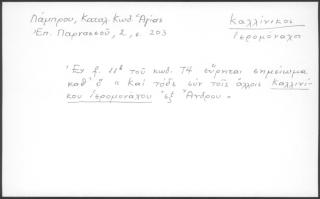 Λάμπρου, Καταλ. Κωδ. Ἁγίας
Ἐπ. Παρνασσοῦ, 2, σ. 203
Καλλίνικος
Ἱερομόναχο
Ἐν f. 11ᵇ τοῦ κωδ. 74 εὕρηται σημείωμα
καθ' ὃ " Καὶ τόδε σὺν τοῖς ἄλλοις Καλλινί-
κου Ἱερομονάχου ἐξ Ἄνδρου "